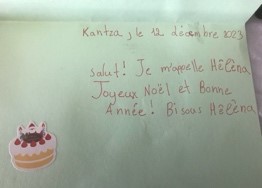 Kantza, le 12 décembre 2023
Salut! Je m'appelle Hélèna
Joyeux Noël et Bonne
Année! Bisous Hélèna